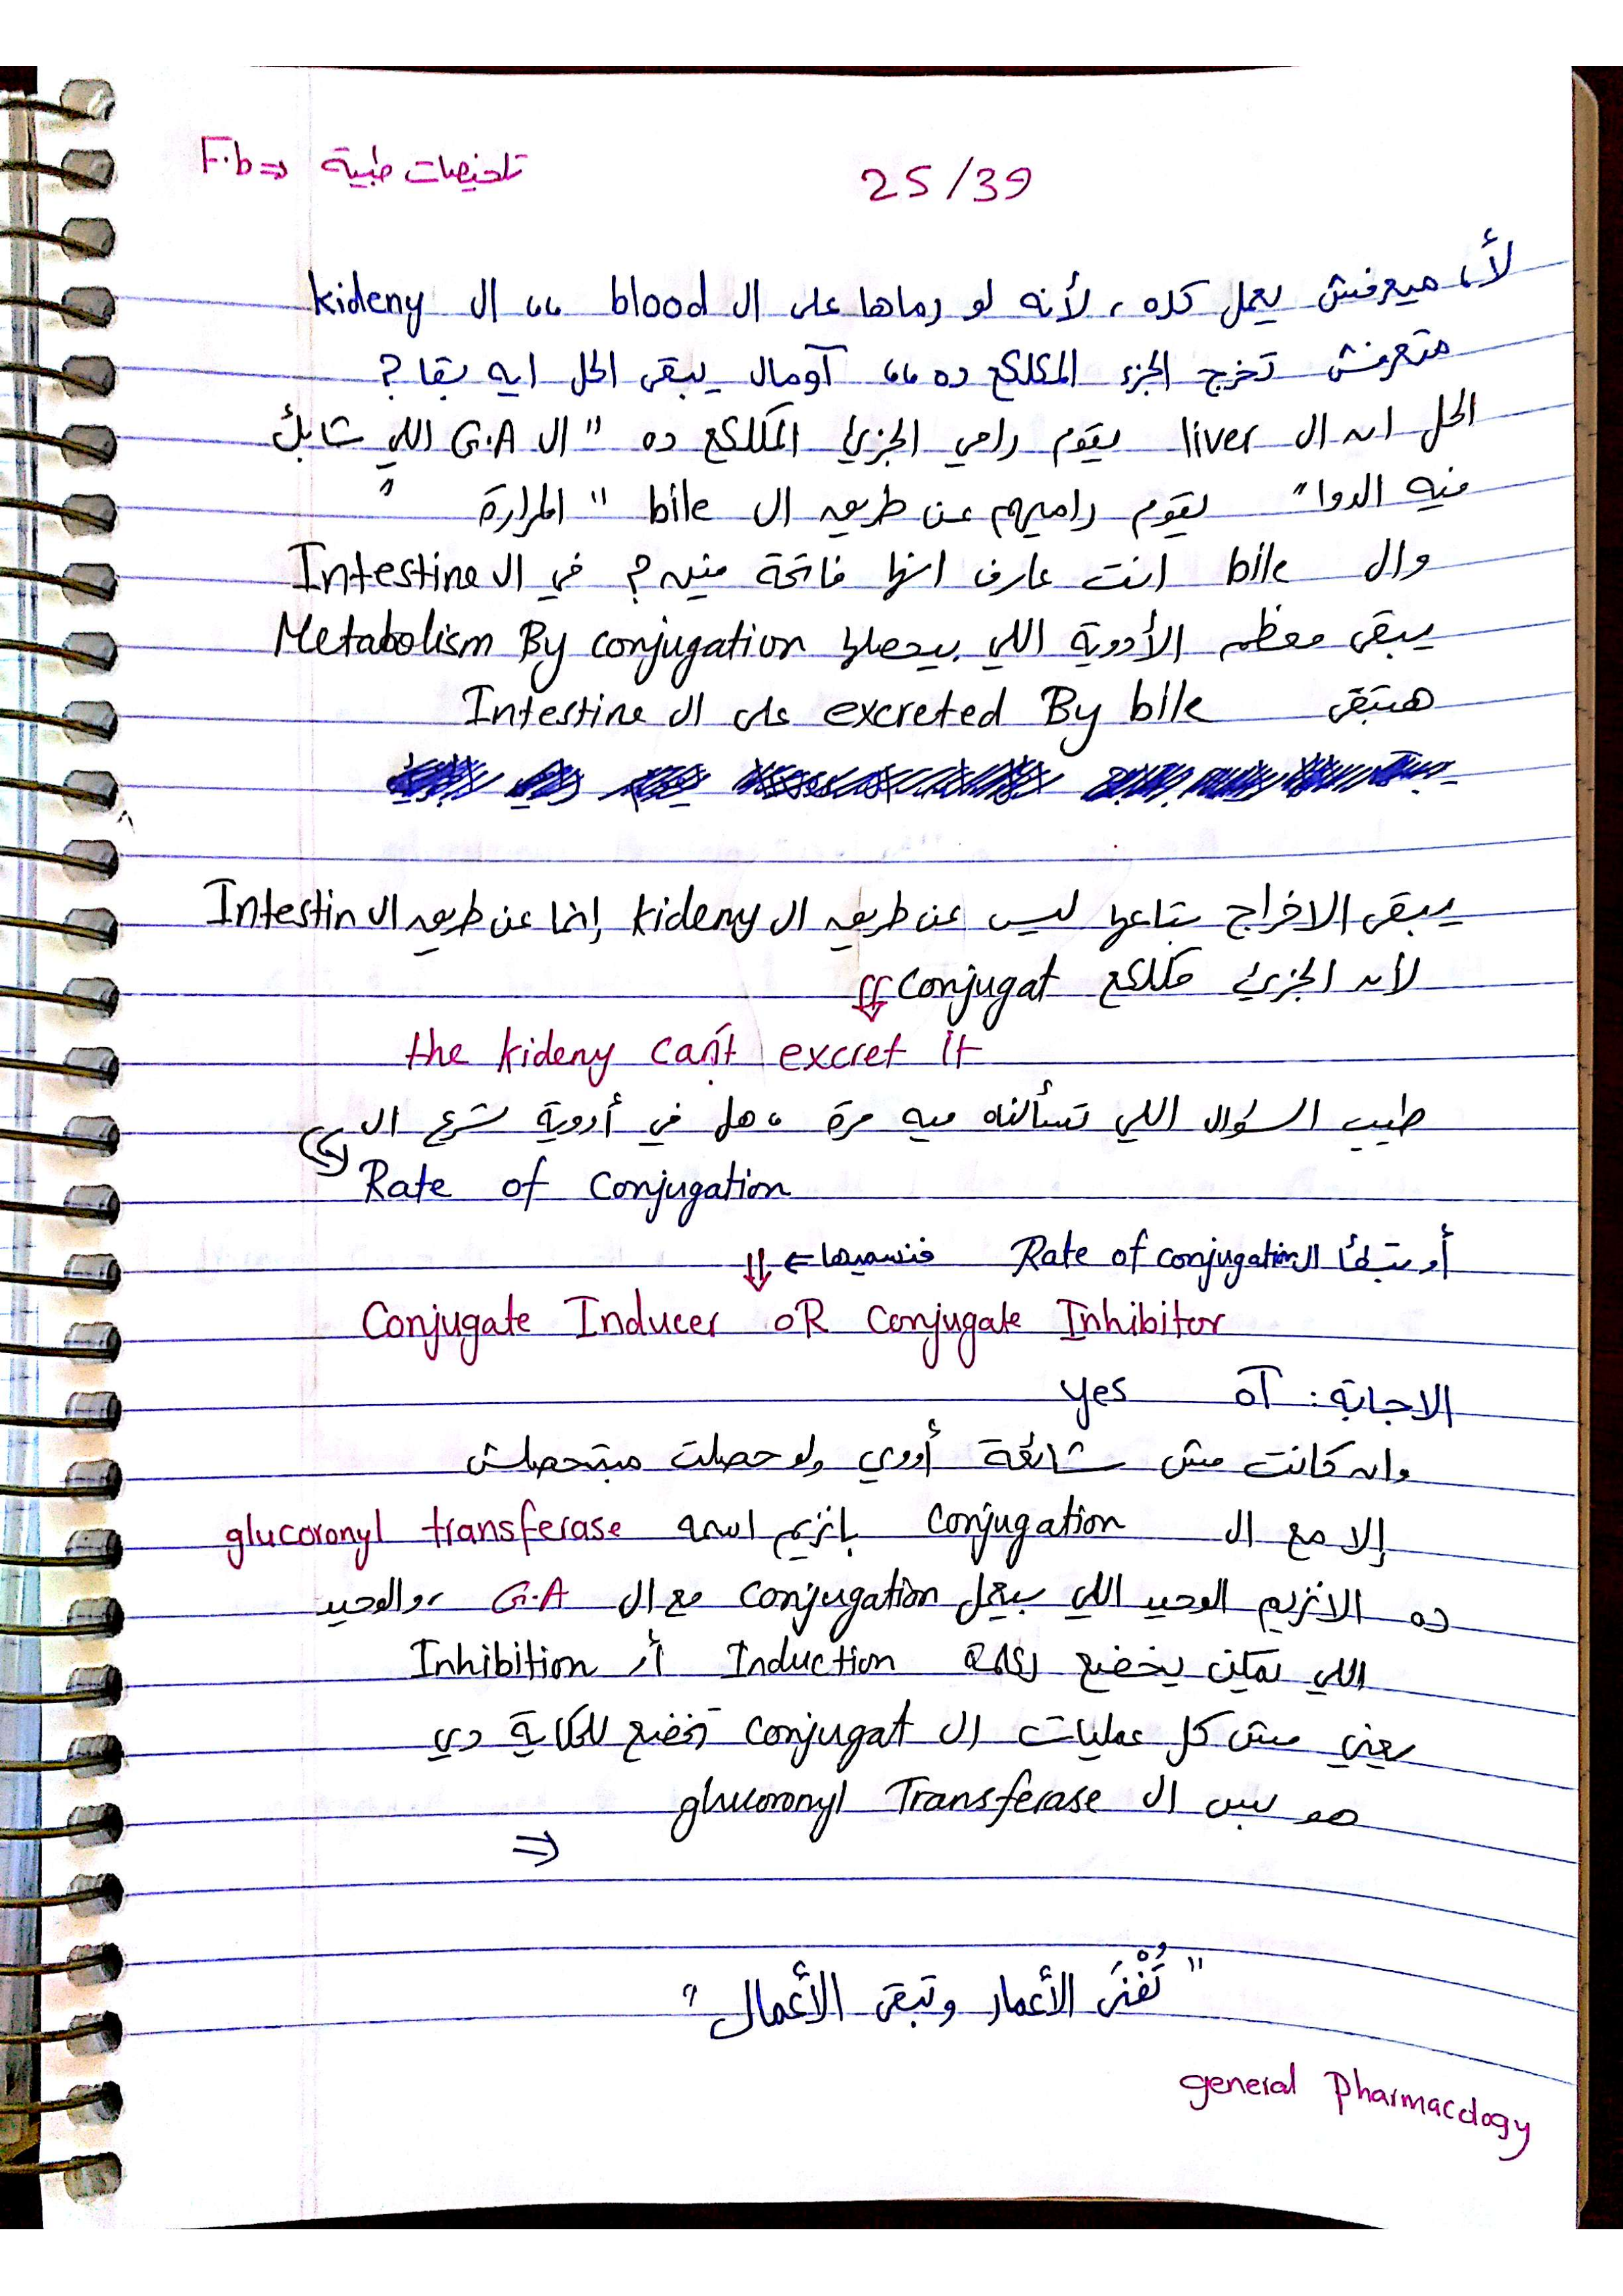 تلخيصات طبية <= F.b
25/39
لأ، ميعرفش يعمل كده، لأنه لو رماها على ال blood ،، ال kideny
متعرفش تخرج الجزء المكلكع ده ،، أومال يبقى الحل ايه بقا ?
الحل ان ال liver يقوم رامي الجزئ المكلكع ده " ال G.A اللي شابك
فيه الدوا" يقوم راميهم عن طريق ال bile " المرارة "
وال bile انت عارف انها فاتحة فين ? في ال Intestine
يبقى معظم الأدوية اللي بيحصلها Metabolism By conjugation
هتبقى excreted By bile على ال Intestine
يبقى الاخراج بتاعها ليس عن طريق ال kideny إنما عن طريق ال Intestin
لأن الجزئ مكلكع conjugat
the kideny can't excret It
طيب السؤال اللي تسألناه فيه مرة ، هل في أدوية تسرع ال
Rate of conjugation
أو تبطأ ال Rate of conjugation فنسميها ←
Conjugate Inducer oR Conjugate Inhibitor
الاجابة : آه yes
وان كانت مش شائعة أووي ولو حصلت مبتحصلش
إلا مع ال conjugation بانزيم اسمه glucoronyl transferase
ده الانزيم الوحيد اللي بيعمل conjugation مع ال G.A ، والوحيد
اللي ممكن يخضع Induction أو Inhibition
يعني مش كل عمليات ال conjugat تخضع للحكاية دي
هو بس ال glucoronyl Transferase
⇒
" تُفْنَى الأعمار وتبقى الأعمال "
general pharmacology